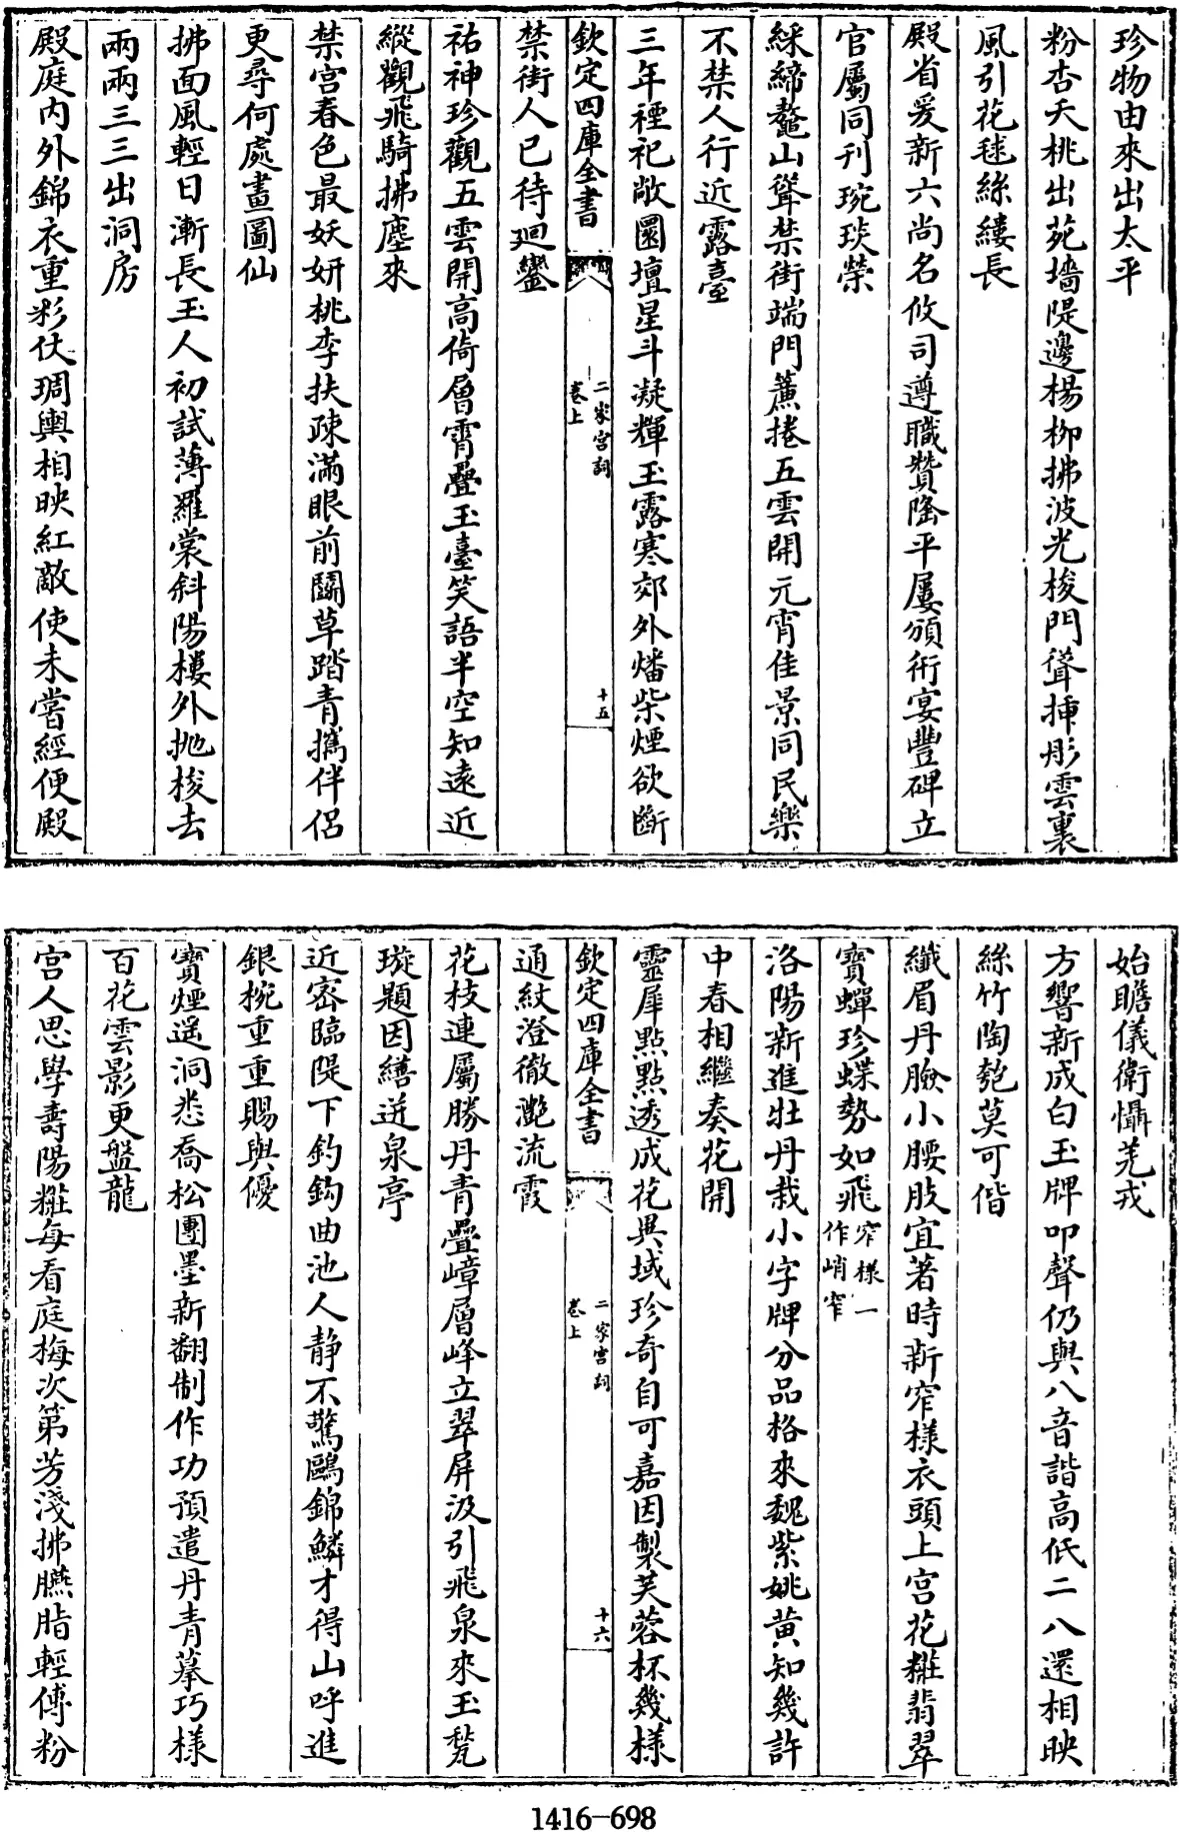 珍物由來出太平
粉杏夭桃出苑墻隄邊楊柳拂波光梭門聳揷彤雲裏
風引花毬絲縷長
殿省爰新六尚名攸司遵職贊隆平屢頒衎宴豐碑立
官屬同刋琬琰榮
綵締鼇山聳禁街端門簾捲五雲開元宵佳景同民樂
不禁人行近露臺
三年禋祀敞圜壇星斗凝輝玉露寒郊外燔柴煙欲斷
欽定四庫全書
二家宮詞
卷上
十五
禁街人已待廻鑾
祐神珍觀五雲開高倚層霄疊玉臺笑語半空知遠近
縱觀飛騎拂塵來
禁宮春色最妖妍桃李扶疎滿眼前鬭草踏青攜伴侣
更尋何處畫圖仙
拂面風輕日漸長玉人初試薄羅裳斜陽樓外拋梭去
兩兩三三出洞房
殿庭內外錦衣重彩仗琱輿相映紅敵使未嘗經便殿
始瞻儀衛懾羌戎
方響新成白玉牌叩聲仍與八音諧高低二八還相映
絲竹陶匏莫可偕
纖眉丹臉小腰肢宜著時新窄樣衣頭上宮花糚翡翠
寶蟬珍蝶勢如飛窄樣一作峭窄
洛陽新進牡丹栽小字牌分品格來魏紫姚黄知幾許
中春相繼奏花開
靈犀點點透成花異域珍奇自可嘉因製芙蓉杯幾樣
欽定四庫全書
二家宮詞
卷上
十六
通紋澄徹灔流霞
花枝連屬勝丹青疊嶂層峰立翠屏汲引飛泉來玉甃
璇題因繕迸泉亭
近密臨隄下釣鈎曲池人静不驚鷗錦鱗才得山呼進
銀椀重重賜與優
寶煙遥洞悉喬松團墨新翻制作功預遣丹青摹巧様
百花雲影更盤龍
宮人思學壽陽糚每看庭梅次第芳淺拂臙脂輕傅粉
1416-698